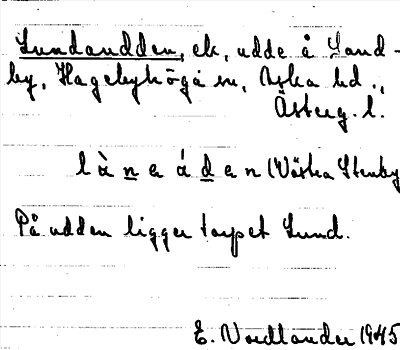 Lundaudden, ek, udde å Sand-
by, Hagebyhöga sn, Aska hd.,
Österg. l.
l à n e á d e n (Västra Stenby
På udden ligger torpet Lund.
E. Nordlander 1945